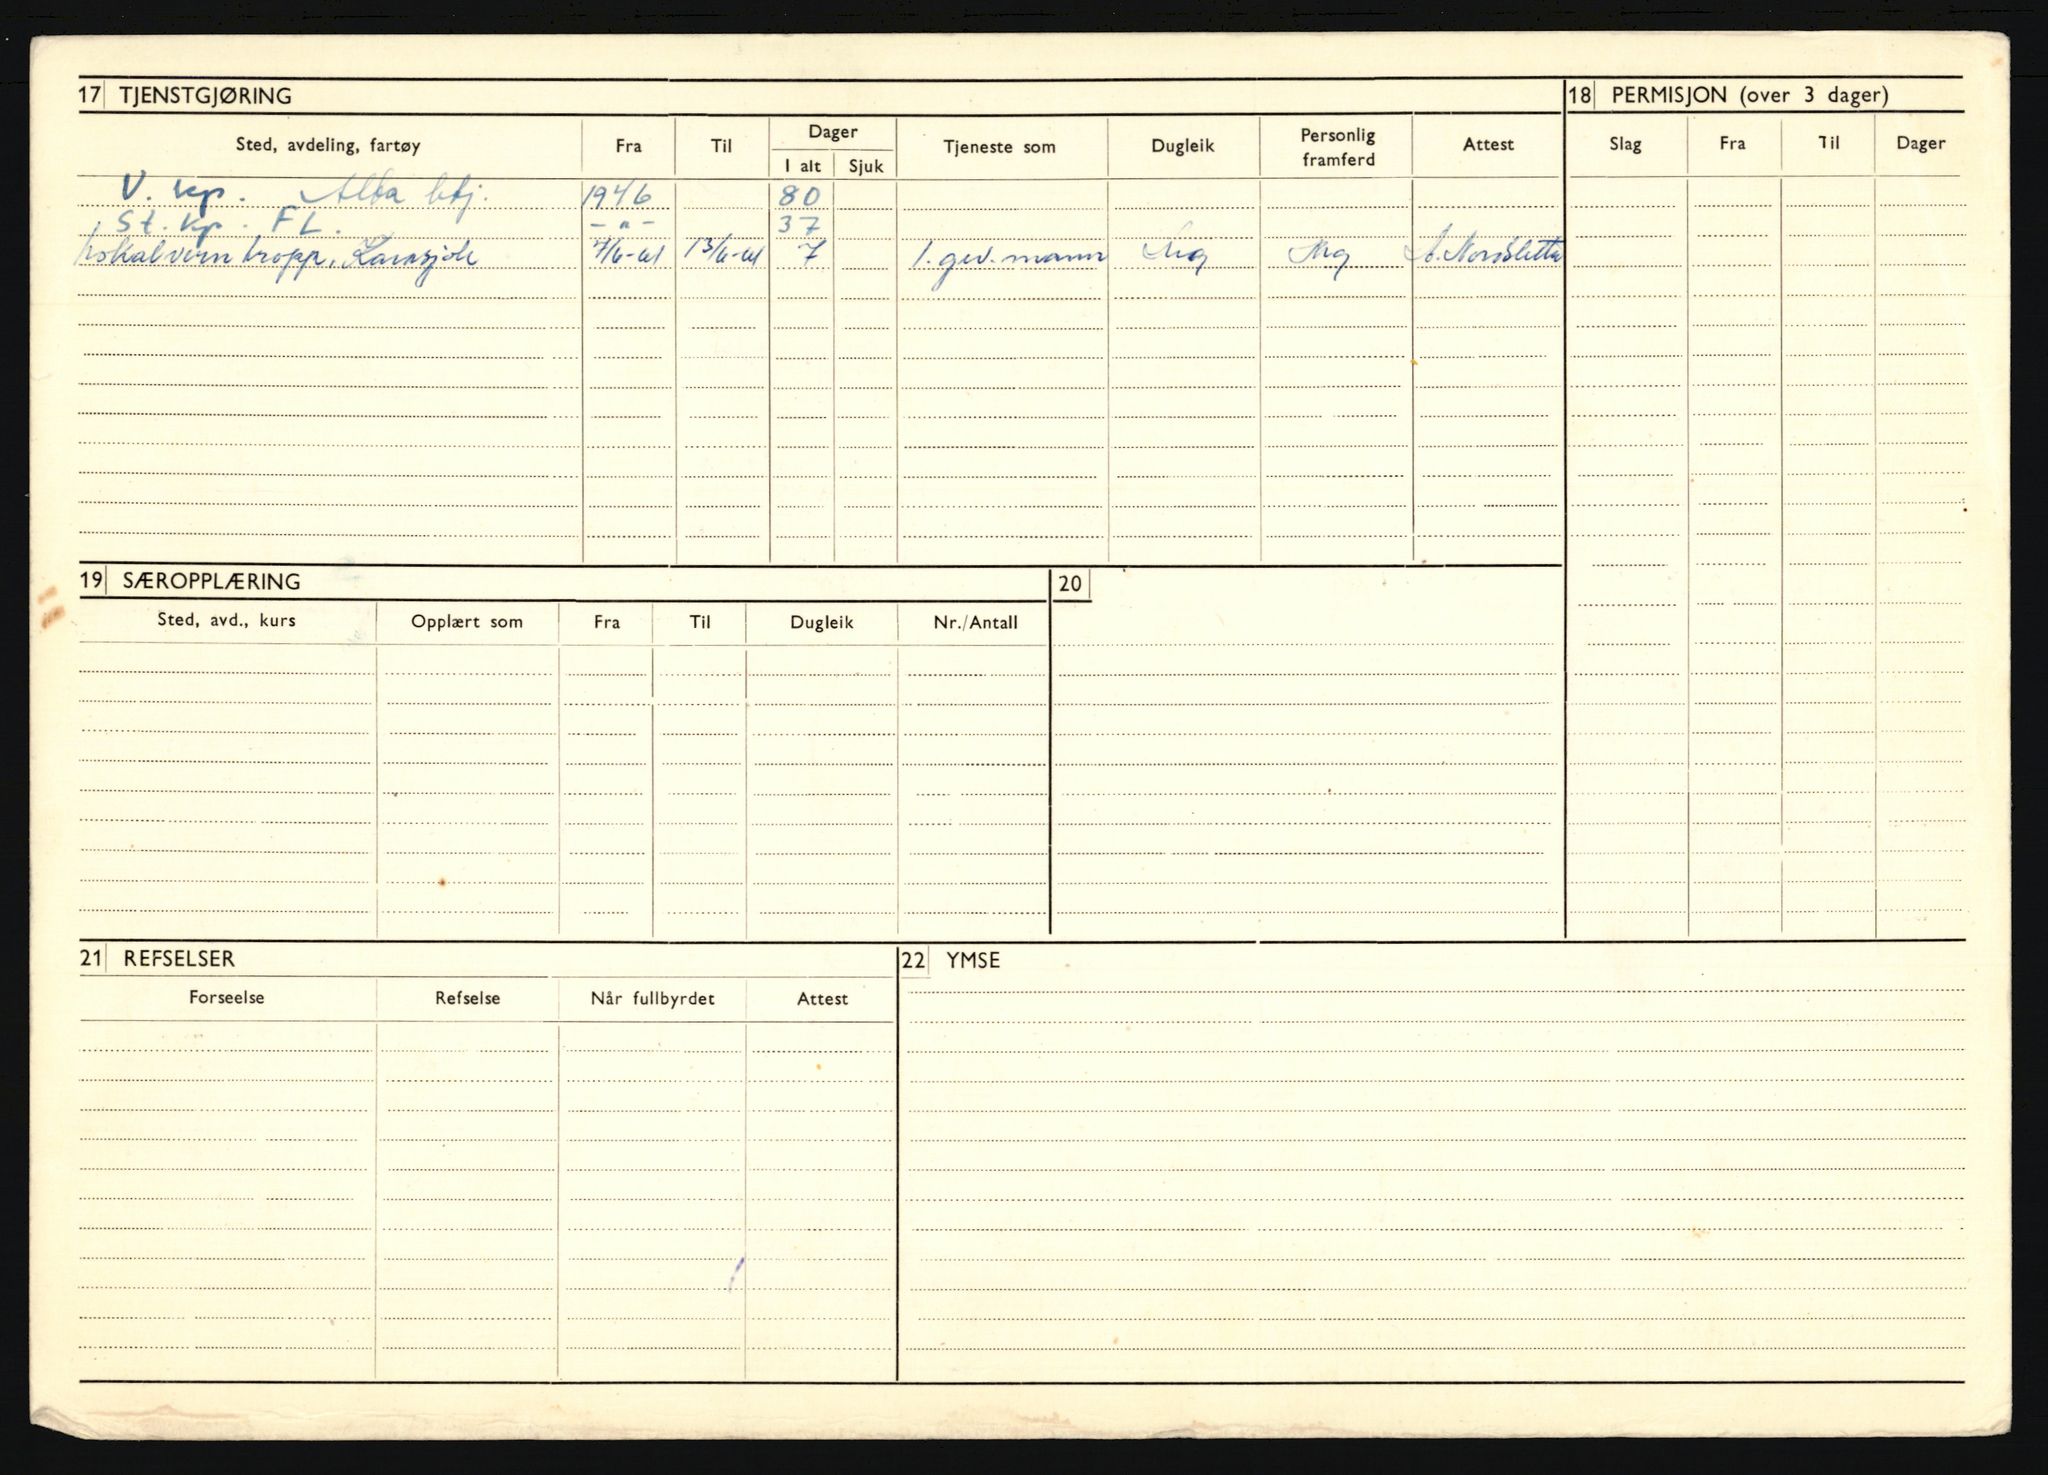 17 TJENSTGJØRING
18 PERMISJON (over 3 dager)
Sted, avdeling, fartøy Fra Til Dager I alt Sjuk Tjeneste som Dugleik Personlig framferd Attest
Slag Fra Til Dager
V. kp. Alta btj. 1946 80
St. kp. FL. -"- 37
Lokalvern tropp, Karasjok 7/6-61 13/6-61 7 1. gev. mann Mg Mg A. Nordsletta
19 SÆROPPLÆRING
20
Sted, avd., kurs Opplært som Fra Til Dugleik Nr./Antall
21 REFSELSER
22 YMSE
Forseelse Refselse Når fullbyrdet Attest